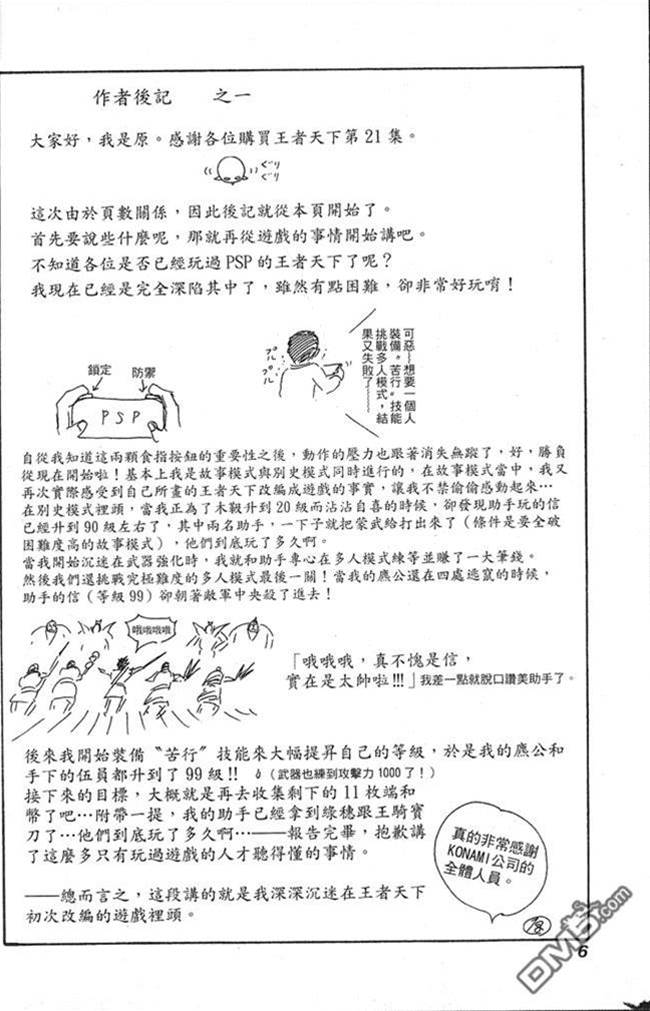 作者後記　之一
大家好，我是原。感謝各位購買王者天下第21集。
ぐり
ぐり
這次由於頁數關係，因此後記就從本頁開始了。
首先要說些什麼呢，那就再從遊戲的事情開始講吧。
不知道各位是否已經玩過PSP的王者天下了呢？
我現在已經是完全深陷其中了，雖然有點困難，卻非常好玩唷！
可惡~想要一個人
裝備。苦行。技能
挑戰多人模式，結
果又失敗了~~~~
プル
プル
鎖定
防禦
PSP
自從我知道這兩顆食指按鈕的重要性之後，動作的壓力也跟著消失無蹤了，好，勝負
從現在開始啦！基本上我是故事模式與別史模式同時進行的，在故事模式當中，我又
再次實際感受到自己所畫的王者天下改編成遊戲的事實，讓我不禁偷偷感動起來…
在別史模式裡頭，當我正為了木靫升到20級而沾沾自喜的時候，卻發現助手玩的信
已經升到90級左右了，其中兩名助手，一下子就把蒙武給打出來了（條件是要全破
困難度高的故事模式），他們到底玩了多久啊。
當我開始沉迷在武器強化時，我就和助手專心在多人模式練等並賺了一大筆錢。
然後我們還挑戰究極難度的多人模式最後一關！當我的麃公還在四處逃竄的時候，
助手的信（等級99）卻朝著敵軍中央殺了進去！
哦哦哦哦
「哦哦哦，真不愧是信，
實在是太帥啦!!!」我差一點就脫口讚美助手了。
後來我開始裝備〝苦行〞技能來大幅提昇自己的等級，於是我的麃公和
手下的伍員都升到了99級!!（武器也練到攻擊力1000了！）
接下來的目標，大概就是再去收集剩下的11枚端和
幣了吧…附帶一提，我的助手已經拿到綠穗跟王騎寶
刀了…他們到底玩了多久啊…——報告完畢，抱歉講
了這麼多只有玩過遊戲的人才聽得懂的事情。
真的非常感謝
KONAMI公司的
全體人員。
——總而言之，這段講的就是我深深沉迷在王者天下
初次改編的遊戲裡頭。
DM5.com
6